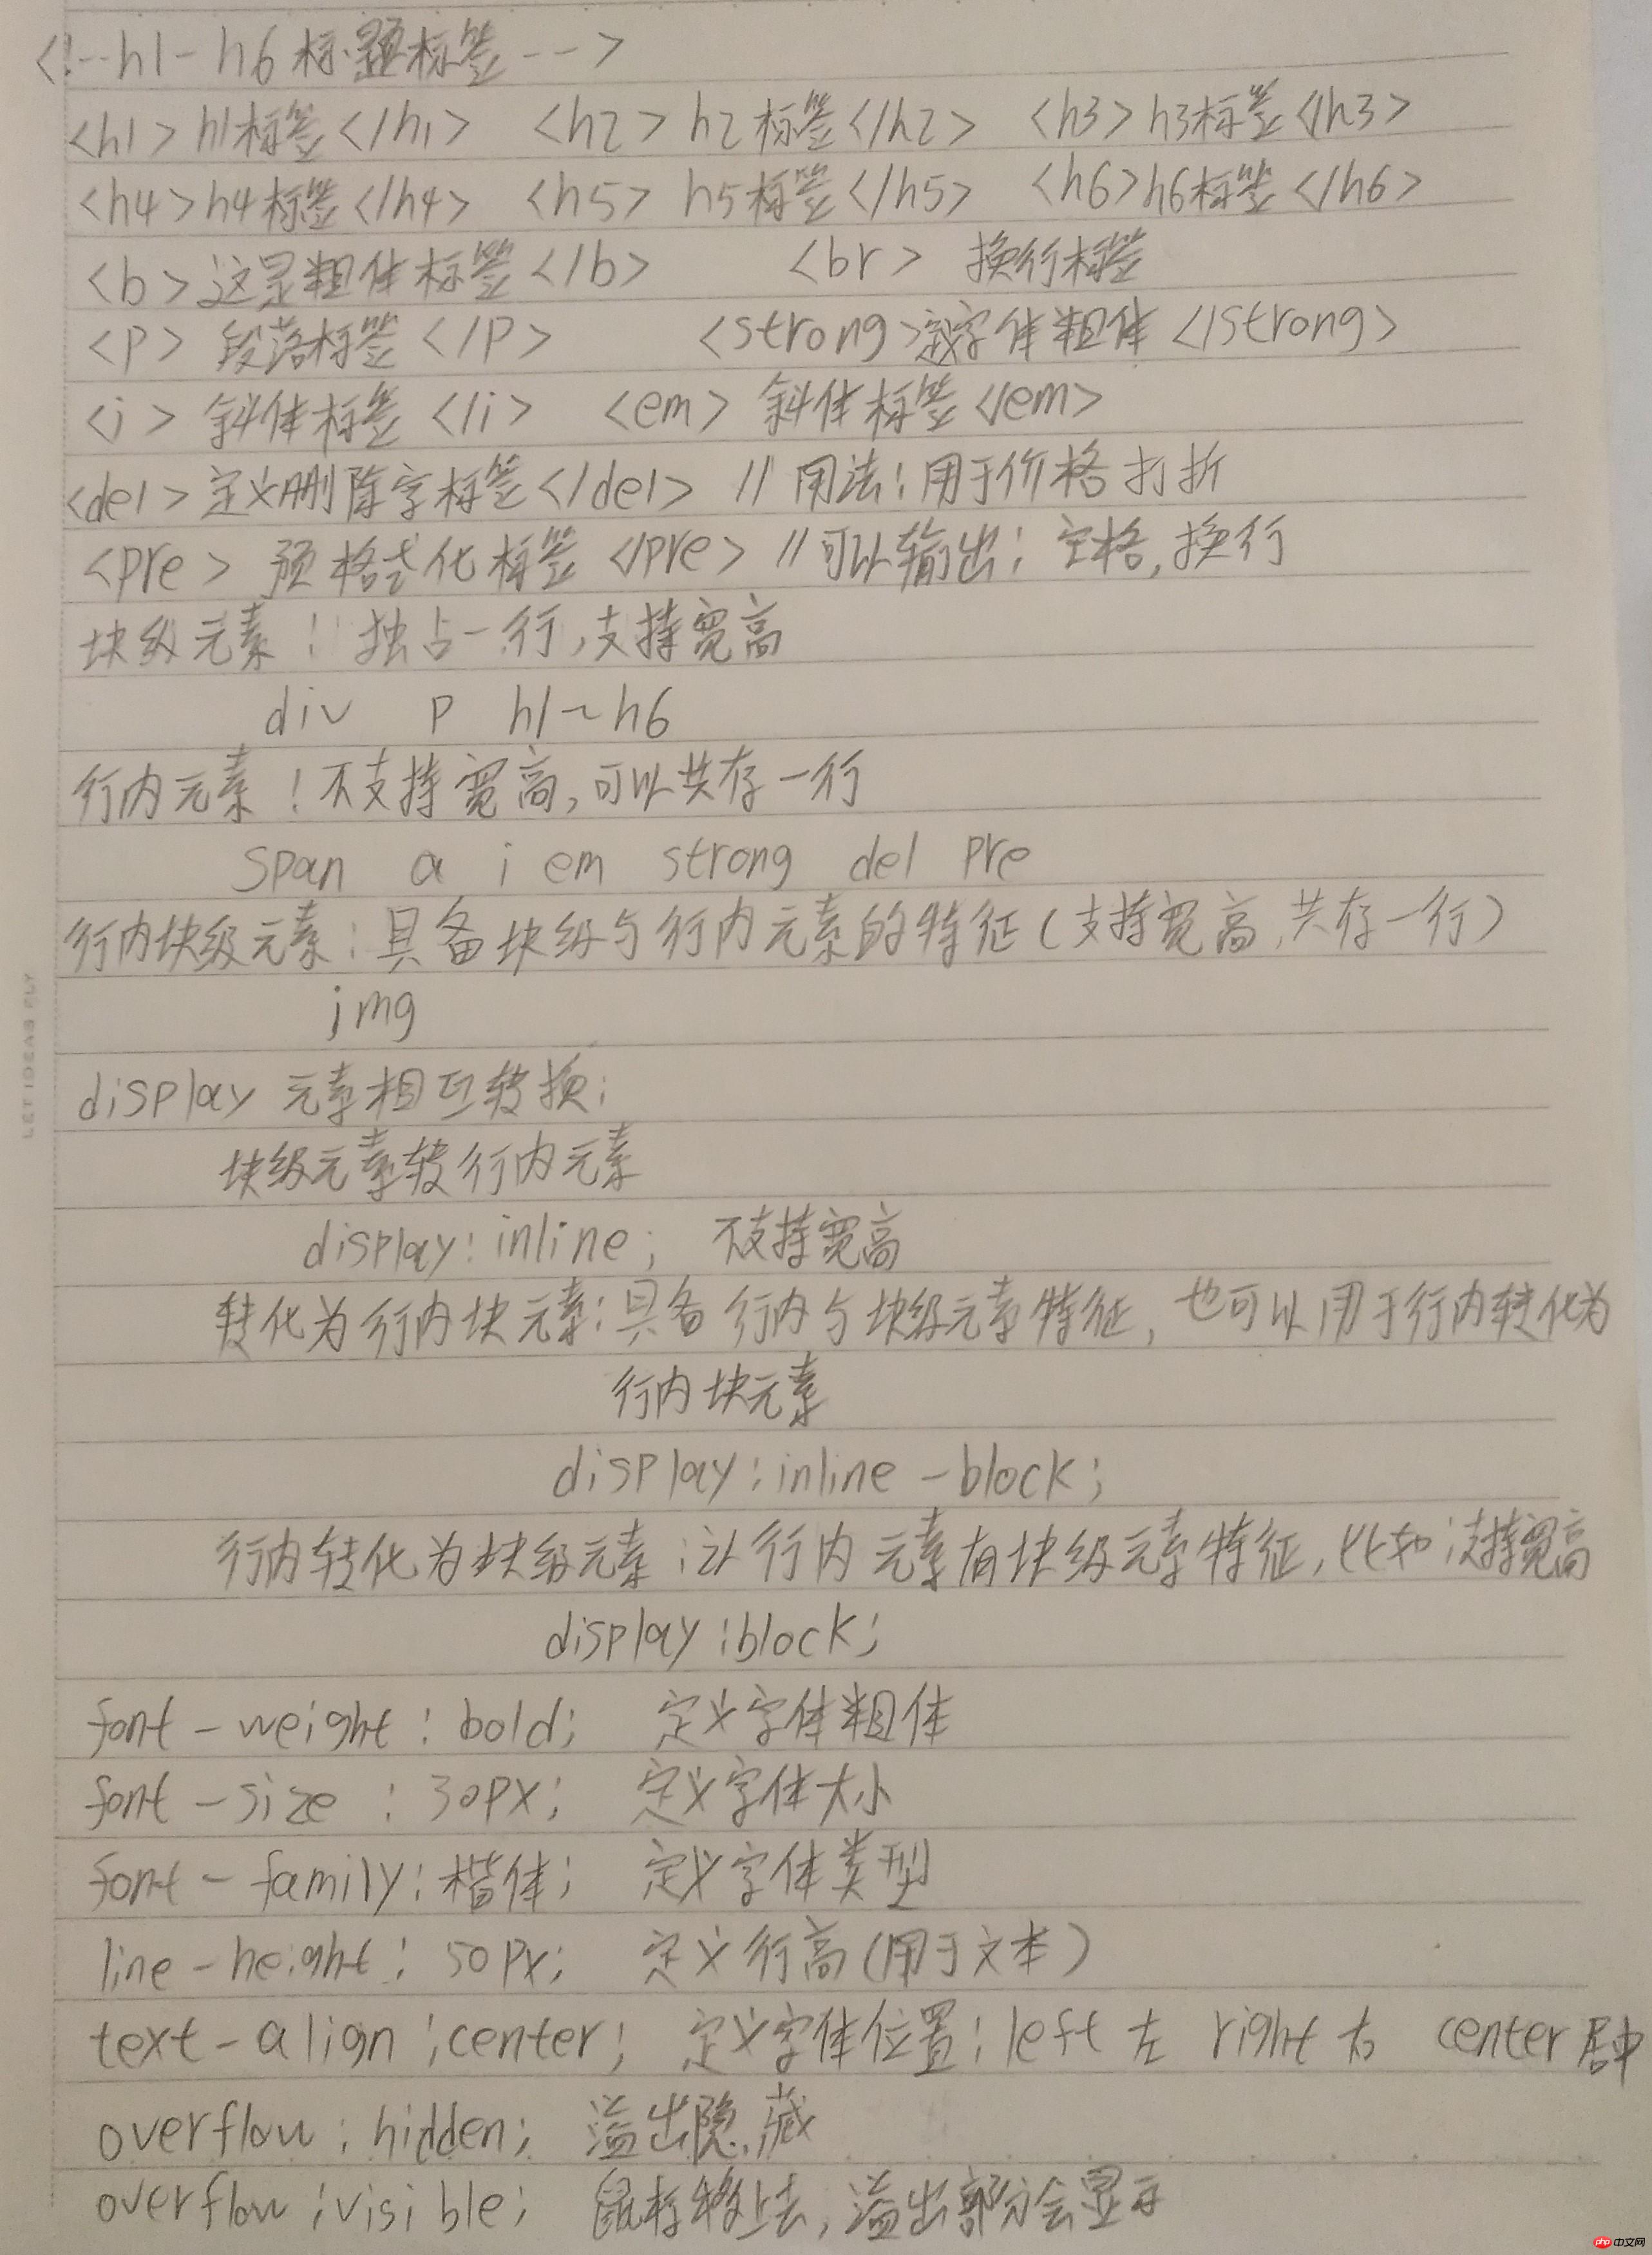 <!--h1-h6标题标签-->
<h1>h1标签</h1> <h2>h2标签</h2> <h3>h3标签</h3>
<h4>h4标签</h4> <h5>h5标签</h5> <h6>h6标签</h6>
<b>这是粗体标签</b> <br> 换行标签
<p>段落标签</p> <strong>定义字体粗体</strong>
<i>斜体标签</i> <em>斜体标签</em>
<del>定义删除字标签</del> //用法:用于价格打折
<pre>预格式化标签</pre> //可以输出:空格,换行
块级元素:独占一行,支持宽高
div p h1~h6
行内元素:不支持宽高,可以共存一行
span a i em strong del pre
行内块级元素:具备块级与行内元素的特征(支持宽高,共存一行)
img
display 元素相互转换:
块级元素转行内元素
display:inline; 不支持宽高
转化为行内块元素:具备行内与块级元素特征,也可以用于行内转化为
行内块元素
display:inline-block;
行内转化为块级元素:让行内元素有块级元素特征,比如:支持宽高
display:block;
font-weight:bold; 定义字体粗体
font-size:30px; 定义字体大小
font-family:楷体; 定义字体类型
line-height:50px; 定义行高(用于文本)
text-align:center; 定义字体位置:left左 right右 center居中
overflow:hidden; 溢出隐藏
overflow:visible; 鼠标移上去,溢出部分会显示
LET IDEAS FLY
php 中文网